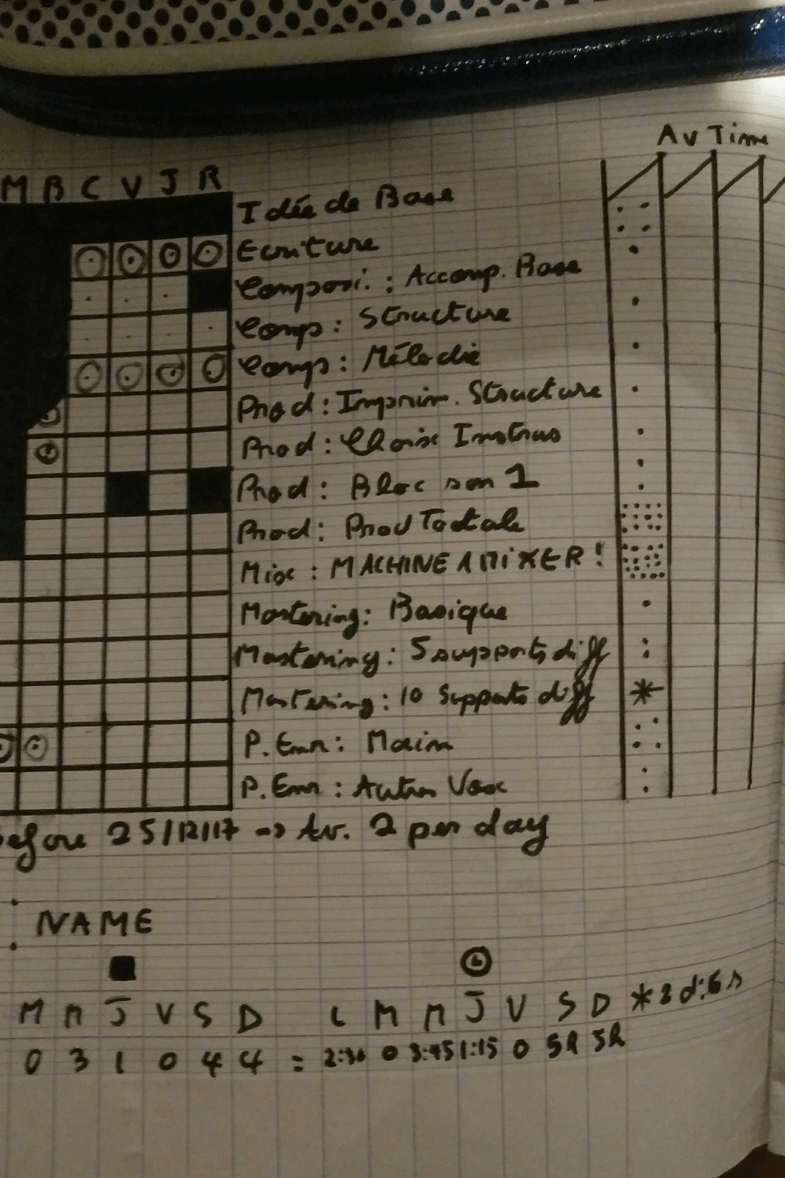 Av Time
M B C V J R
Idée de Base
Ecriture
Composi. : Accomp. Base
Comp : Structure
Comp : Mélodie
Prod : Imprim. Structure
Prod : Choix Instrus
Prod : Bloc son 1
Prod : Prod Totale
Mix : MACHINE A MIXER !
Mastering : Basique
Mastering : 5 supports diff
Mastering : 10 Supports diff
P. Enr : Main
P. Enr : Autres Voix
efore 25/12/17 => Av. 2 per day
: NAME
M M J V S D L M M J V S D *
0 3 1 0 4 4 = 2:30 0 3:45 1:15 0 SR SR